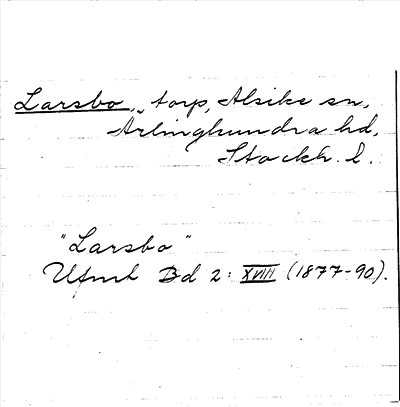 Larsbo, torp, Alsike sn,
Ärlinghundra hd,
Stockh. l.
"Larsbo"
Bd 2: XVIII (1877-90).